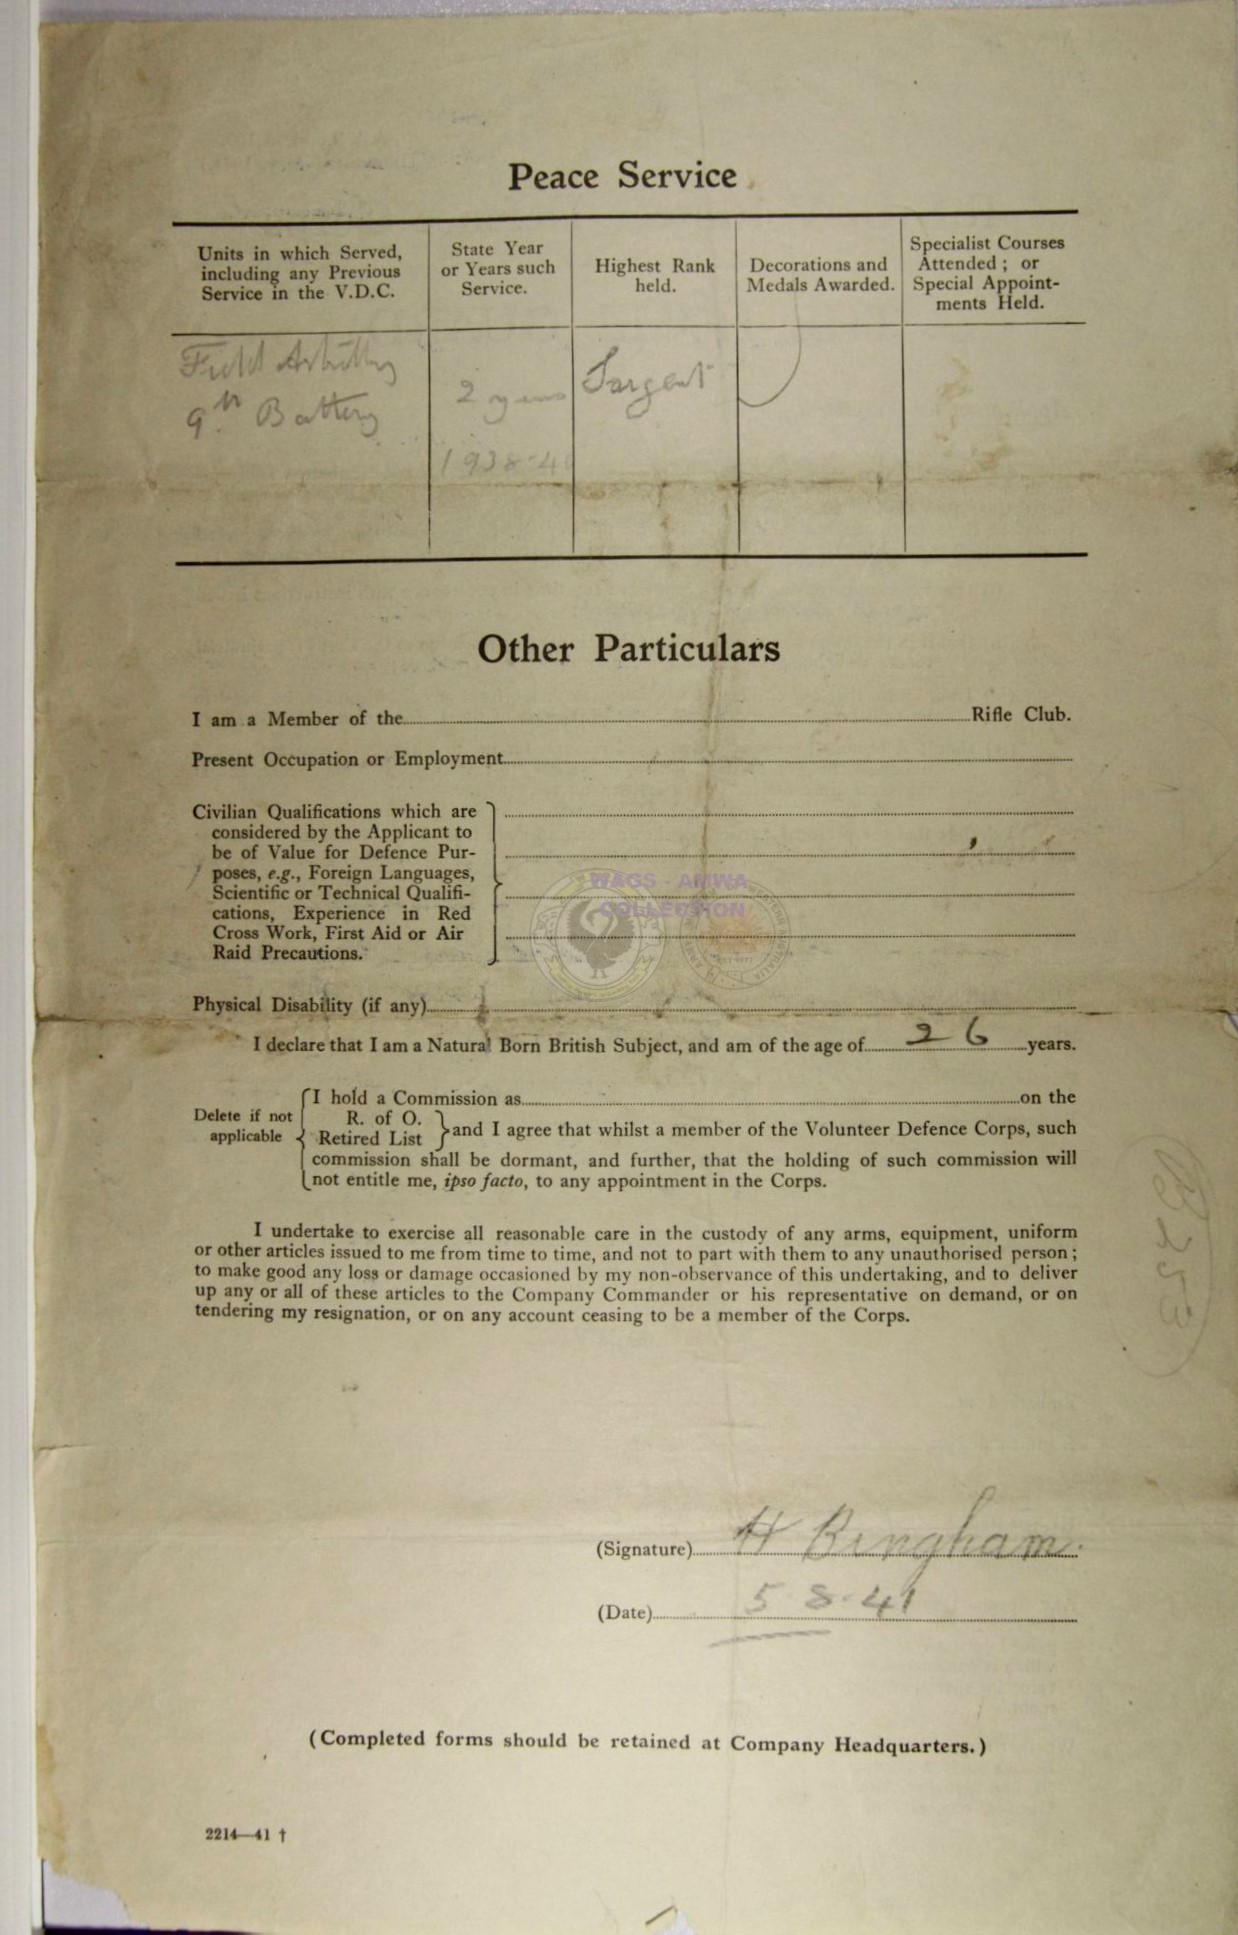 Peace Service
Units in which Served, including any Previous Service in the V.D.C.
State Year or Years such Service.
Highest Rank held.
Decorations and Medals Awarded.
Specialist Courses Attended; or Special Appoint-ments Held.
Field Artillery
9th Battery
2 years
1938-40
Sargent
Other Particulars
I am a Member of the Rifle Club.
Present Occupation or Employment
Civilian Qualifications which are
considered by the Applicant to
be of Value for Defence Pur-
poses, e.g., Foreign Languages,
Scientific or Technical Qualifi-
cations, Experience in Red
Cross Work, First Aid or Air
Raid Precautions.
WAGS - AMWA
COLLECTION
Physical Disability (if any)
I declare that I am a Natural Born British Subject, and am of the age of 26 years.
Delete if not applicable
I hold a Commission as on the
R. of O.
Retired List
and I agree that whilst a member of the Volunteer Defence Corps, such
commission shall be dormant, and further, that the holding of such commission will
not entitle me, ipso facto, to any appointment in the Corps.
I undertake to exercise all reasonable care in the custody of any arms, equipment, uniform
or other articles issued to me from time to time, and not to part with them to any unauthorised person;
to make good any loss or damage occasioned by my non-observance of this undertaking, and to deliver
up any or all of these articles to the Company Commander or his representative on demand, or on
tendering my resignation, or on any account ceasing to be a member of the Corps.
B253
(Signature) H Bingham.
(Date) 5 8.41
(Completed forms should be retained at Company Headquarters.)
2214—41 †